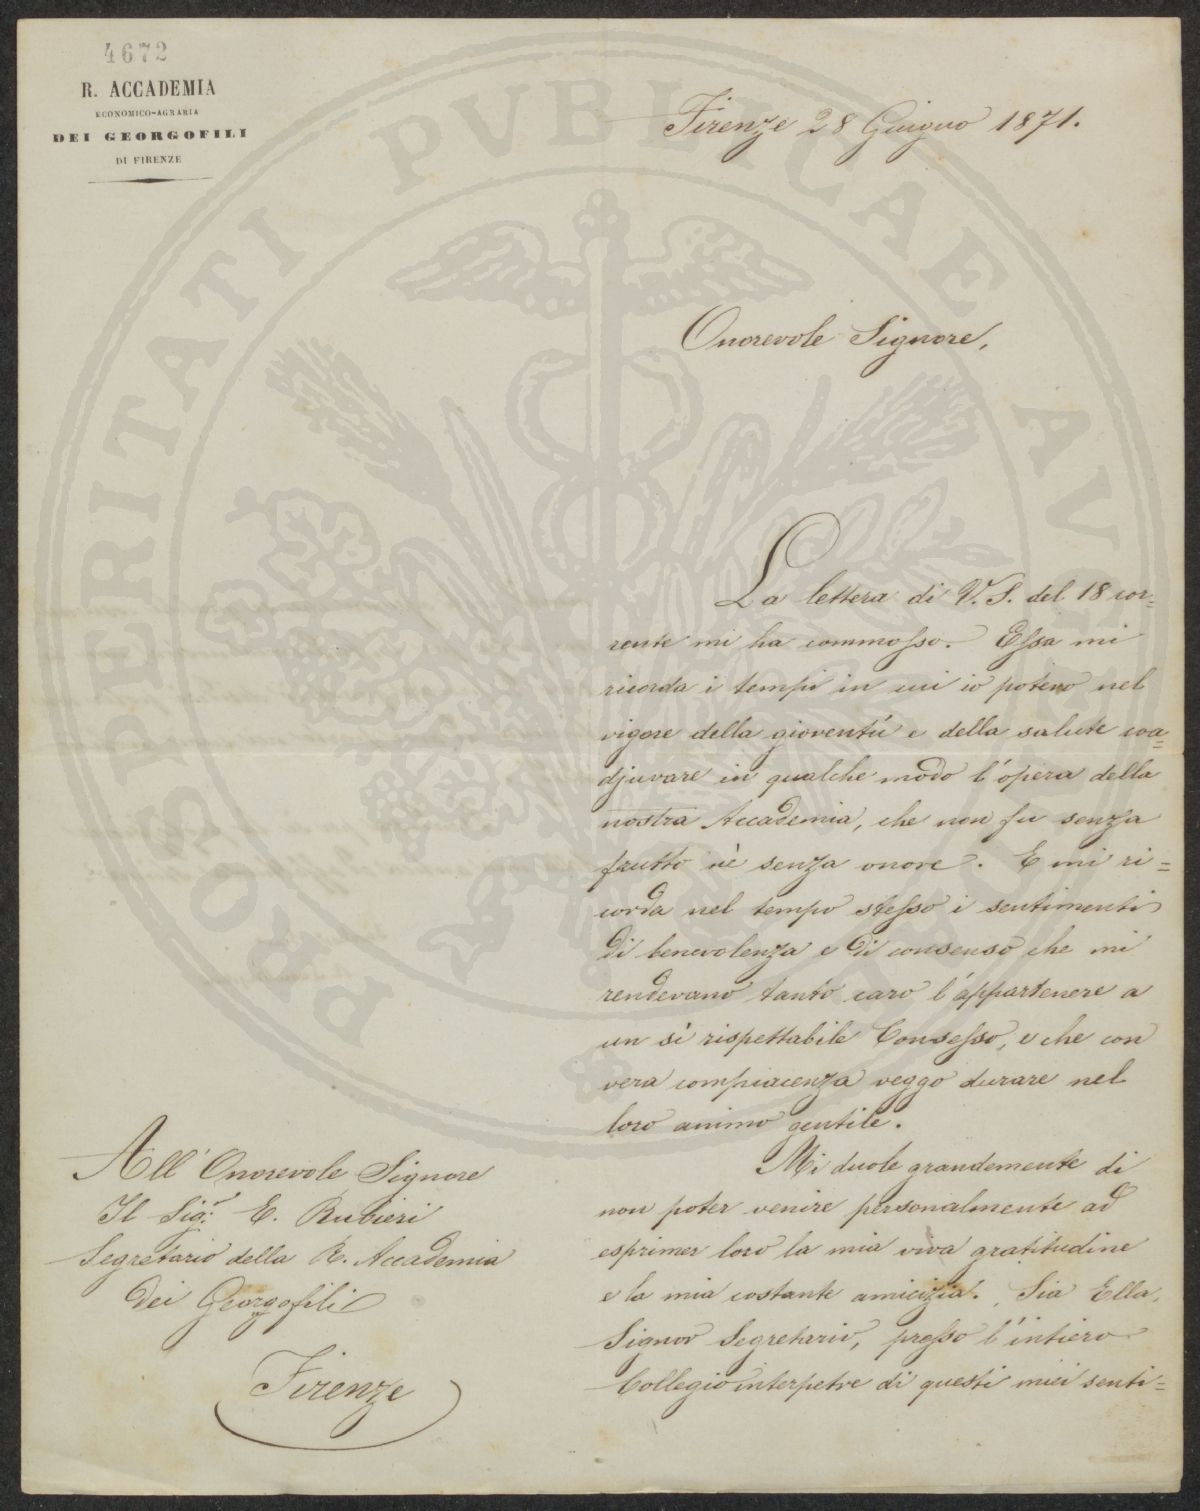 4672
R. ACCADEMIA
ECONOMICO-AGRARIA
DEI GEORGOFILI
DI FIRENZE
Firenze 28 Giugno 1871.
Onorevole Signore,
La lettera di V. S. del 18 cor=
rente mi ha commosso. Essa mi
ricorda i tempi in cui io potevo nel
vigore della gioventù e della salute coa=
djuvare in qualche modo l'opera della
nostra Accademia, che non fu senza
frutto nè senza onore. E mi ri=
corda nel tempo stesso i sentimenti
di benevolenza e di consenso che mi
rendevano tanto caro l'appartenere a
un sì rispettabile Consesso, e che con
vera compiacenza veggo durare nel
loro animo gentile.
Mi duole grandemente di
non poter venire personalmente ad
esprimer loro la mia viva gratitudine
e la mia costante amicizia. Sia Ella,
Signor Segretario, presso l'intiero
Collegio interpetre di questi miei senti=
All' Onorevole Signore
Il Sigr. E. Rubieri
Segretario della R. Accademia
dei Georgofili
Firenze
PROSPERITATI PVBLICAE AVGENDAE